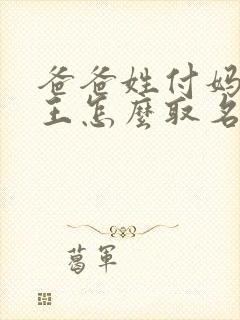 爸爸姓付妈
王怎麼取名
葛軍